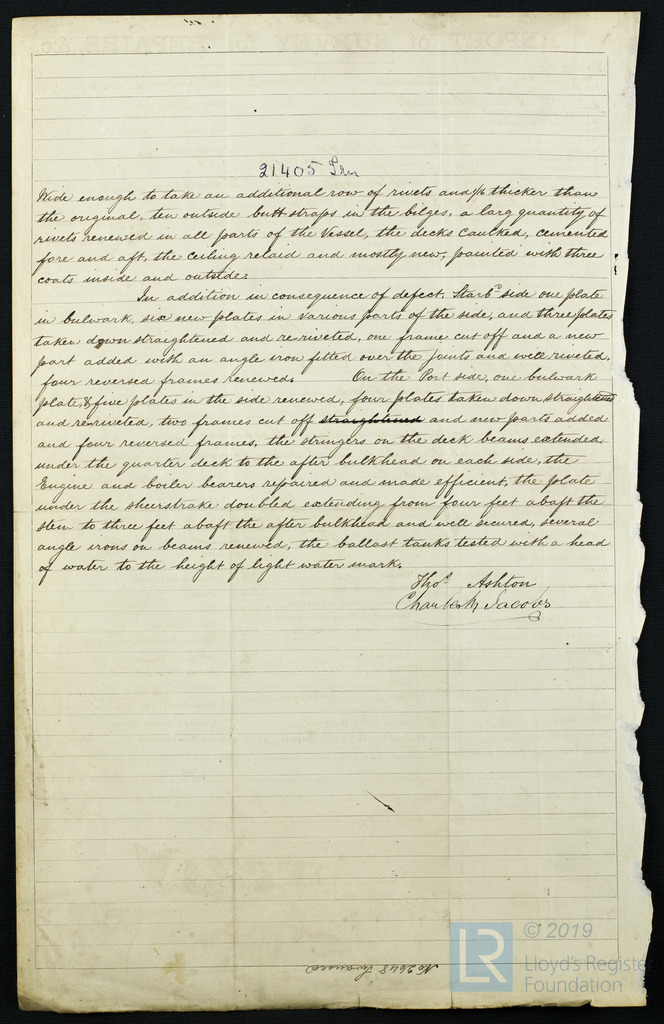 21405 Irn
Wide enough to take an additional row of rivets and 1/16 thicker than
the original, ten outside butt straps in the bilges, a larg quantity of
rivets renewed in all parts of the Vessel, the decks Caulked, cemented
fore and aft, the ceiling relaid and mostly new, painted with three
coats inside and outside.
In addition in consequence of defect. Starbd side one plate
in bulwark, six new plates in various parts of the side, and three plates
taken down straightened and re-riveted, one frame cut off and a new
part added with an angle iron fitted over the joints and well riveted,
four reversed frames renewed. On the Port side, one bulwark
plate, & five plates in the side renewed, four plates taken down straightened
and re-riveted, two frames cut off straightened and new parts added
and four reversed frames, the stringers on the deck beams extended
under the quarter deck to the after bulkhead on each side, the
Engine and boiler bearers repaired and made efficient, the plate
under the sheerstrake doubled extending from four feet abaft the
stem to three feet abaft the after bulkhead and well secured, several
angle irons on beams renewed, the ballast tanks tested with a head
of water to the height of light water mark.
Thos Ashton
Charles M Jacobs
No 2648 Swansea
LR © 2019
Lloyd's Register
Foundation